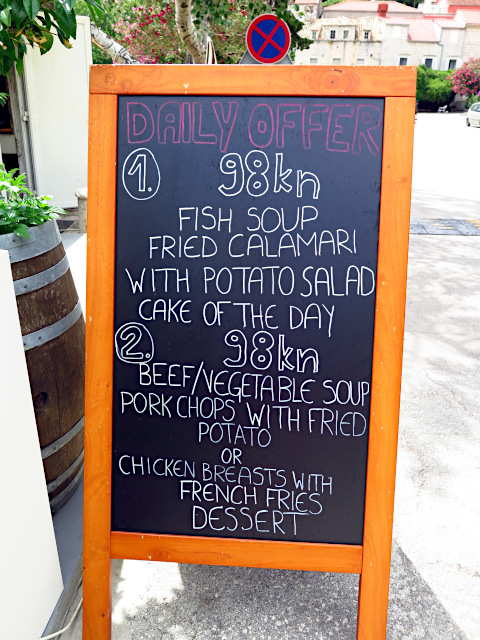 DAILY OFFER
1. 98kn
FISH SOUP
FRIED CALAMARI
WITH POTATO SALAD
CAKE OF THE DAY
2. 98kn
BEEF/VEGETABLE SOUP
PORK CHOPS WITH FRIED
POTATO
OR
CHICKEN BREASTS WITH
FRENCH FRIES
DESSERT